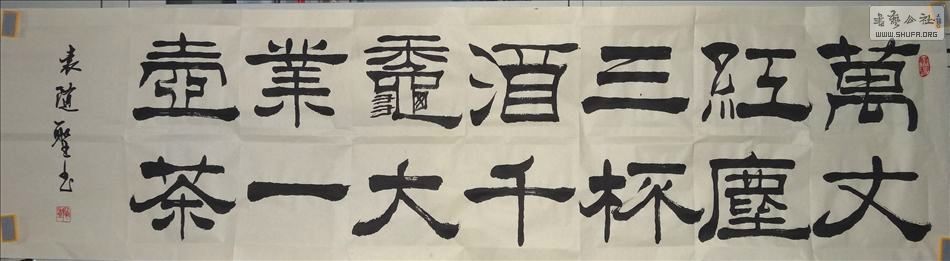 萬丈
紅塵
三杯
酒千
龝大
業一
壺茶
袁随聖书
書藝公社
WWW.SHUFA.ORG